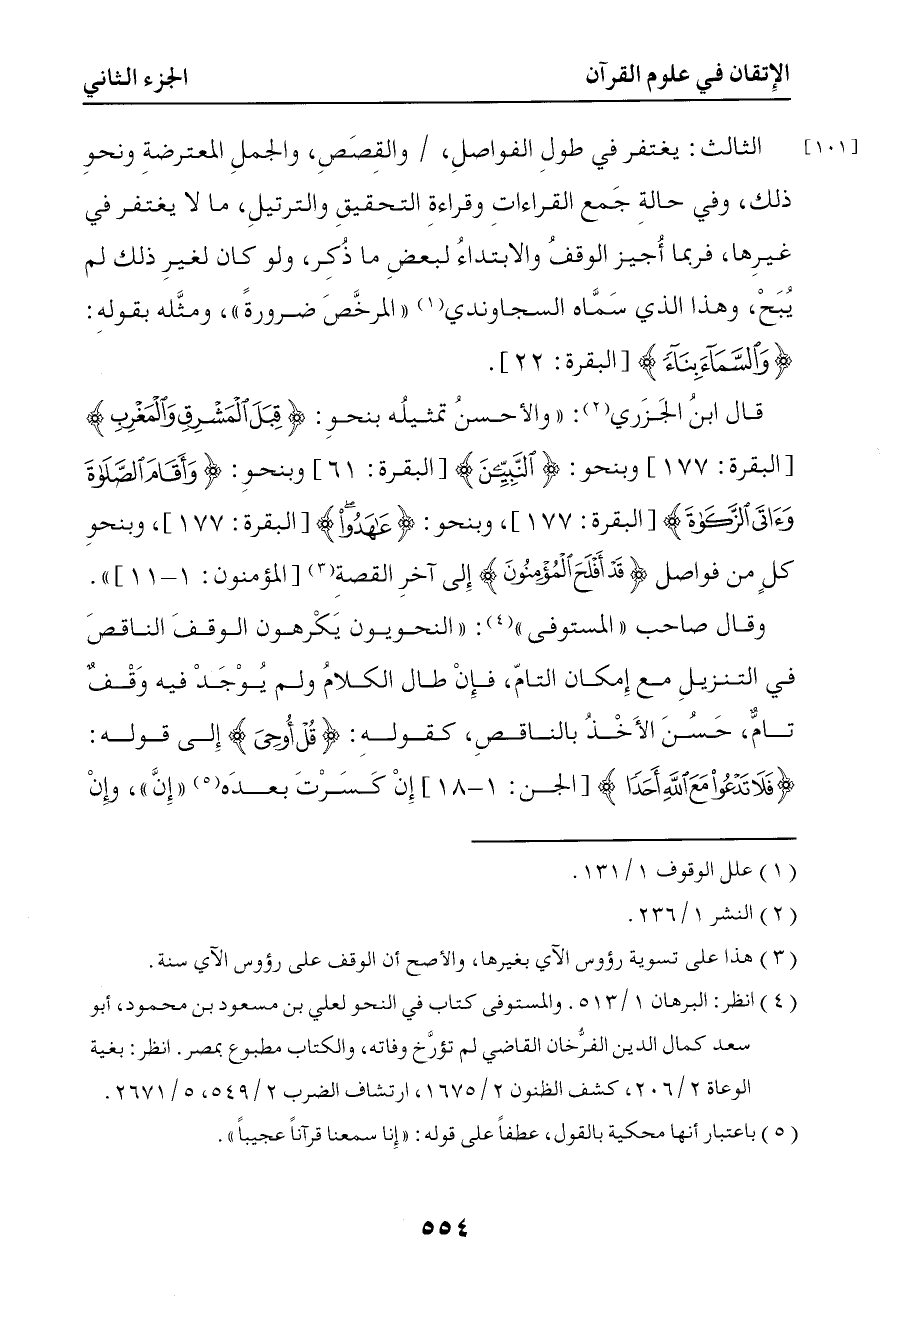 الإتقان في علوم القرآن
الجزء الثاني
[١٠١] الثالث: يغتفر في طولِ الفواصلِ، / والقصَصِ، والجملِ المعترضةِ ونحوِ
ذلك، وفي حالةِ جَمعِ القراءاتِ وقراءةِ التحقيقِ والترتيلِ، ما لا يغتفر في
غيرِها، فربما أُجيز الوقفُ والابتداءُ لبعضِ ما ذُكر، ولو كان لغيرِ ذلك لم
يُبَحْ، وهذا الذي سَمَّاه السجاوندي(١) «المرخَّصَ ضرورةً»، ومثَّله بقولِه:
﴿وَٱلسَّمَآءَ بِنَآءً﴾ [البقرة: ٢٢].
قال ابنُ الجَزَري(٢): «والأحسنُ تمثيلُه بنحوِ: ﴿قِبَلَ ٱلْمَشْرِقِ وَٱلْمَغْرِبِ﴾
[البقرة: ١٧٧] وبنحوِ: ﴿ٱلنَّبِيِّـۧنَ﴾ [البقرة: ٦١] وبنحوِ: ﴿وَأَقَامَ ٱلصَّلَوٰةَ
وَءَاتَى ٱلزَّكَوٰةَ﴾ [البقرة: ١٧٧]، وبنحوِ: ﴿عَٰهَدُوا۟ۖ﴾ [البقرة: ١٧٧]، وبنحوِ
كلٍ من فواصلِ ﴿قَدْ أَفْلَحَ ٱلْمُؤْمِنُونَ﴾ إلى آخرِ القصة(٣) [المؤمنون: ١-١١]».
وقال صاحب «المستوفى»(٤): «النحويون يَكْرهون الوقفَ الناقصَ
في التنزيلِ مع إمكان التامّ، فإنْ طال الكلامُ ولم يُوْجَدْ فيه وَقْفٌ
تامٌّ، حَسُنَ الأَخْذُ بالناقصِ، كقوله: ﴿قُلْ أُوحِىَ﴾ إلى قوله:
﴿فَلَا تَدْعُوا۟ مَعَ ٱللَّهِ أَحَدًا﴾ [الجن: ١-١٨] إنْ كَسَرْتَ بعدَه(٥) «إنَّ»، وإنْ
(١) علل الوقوف ١/١٣١.
(٢) النشر ١/٢٣٦.
(٣) هذا على تسوية رؤوس الآي بغيرها، والأصح أن الوقف على رؤوس الآي سنة.
(٤) انظر: البرهان ١/٥١٣. والمستوفى كتاب في النحو لعلي بن مسعود بن محمود، أبو
سعد كمال الدين الفرُّخان القاضي لم تؤرَّخ وفاته، والكتاب مطبوع بمصر. انظر: بغية
الوعاة ٢/٢٠٦، كشف الظنون ٢/١٦٧٥، ارتشاف الضرب ٢/٥٤٩، ٥/٢٦٧١.
(٥) باعتبار أنها محكية بالقول، عطفاً على قوله: «إنا سمعنا قرآناً عجيباً».
٥٥٤